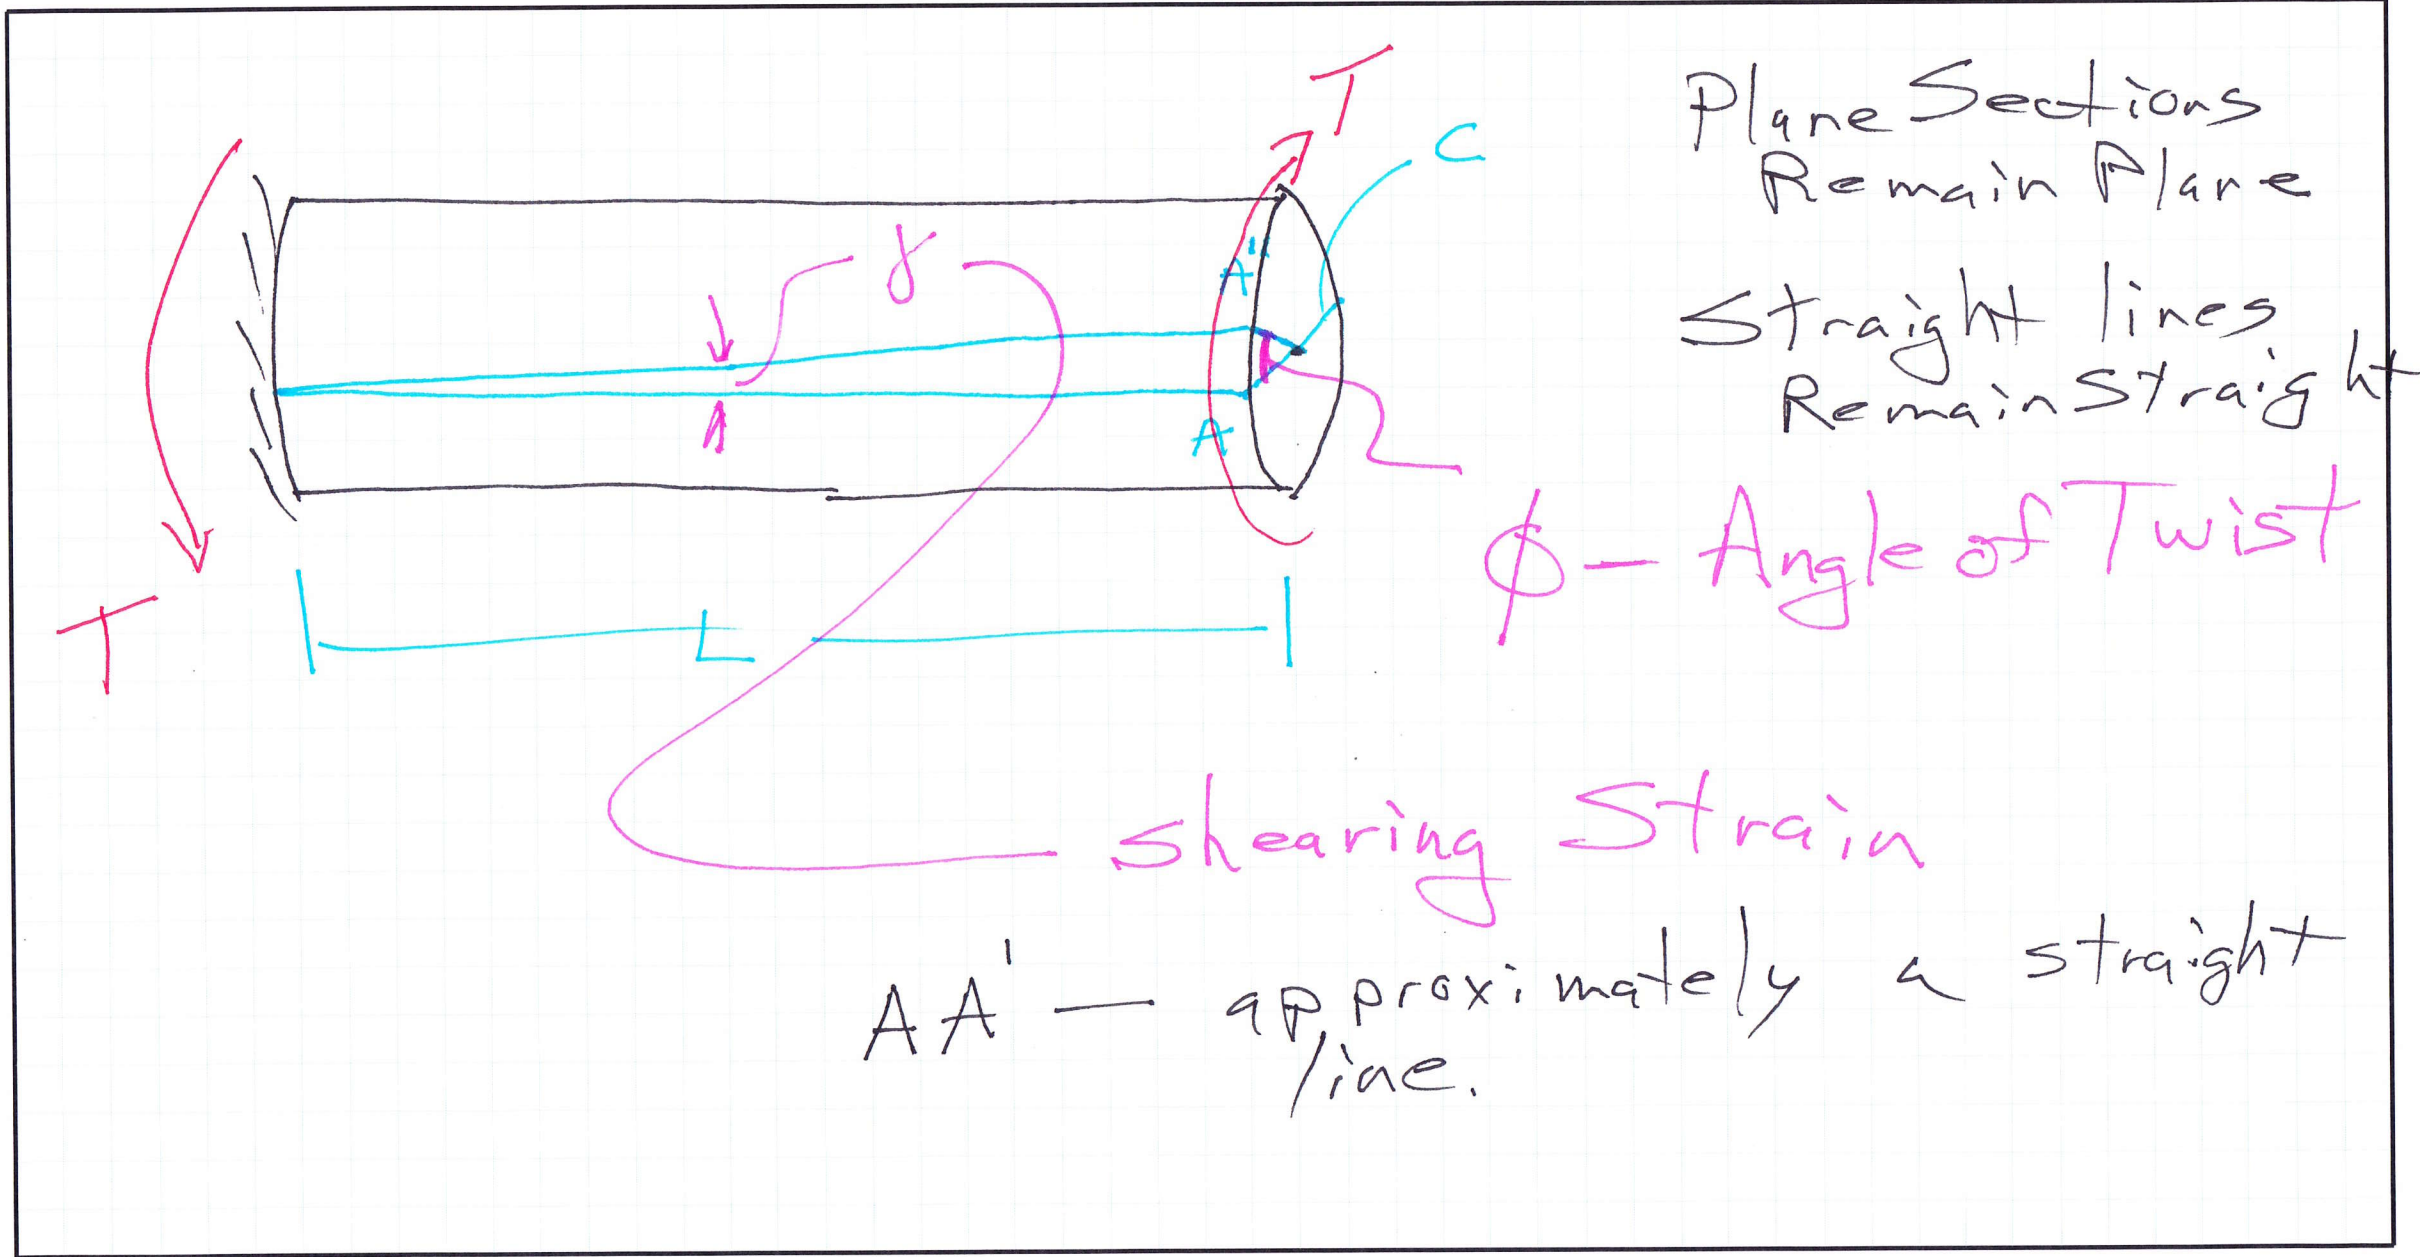 T
C
Plane Sections
Remain Plane
γ
A'
Straight lines
Remain Straight
A
ϕ — Angle of Twist
T
L
Shearing Strain
AA' — approximately a straight
line.